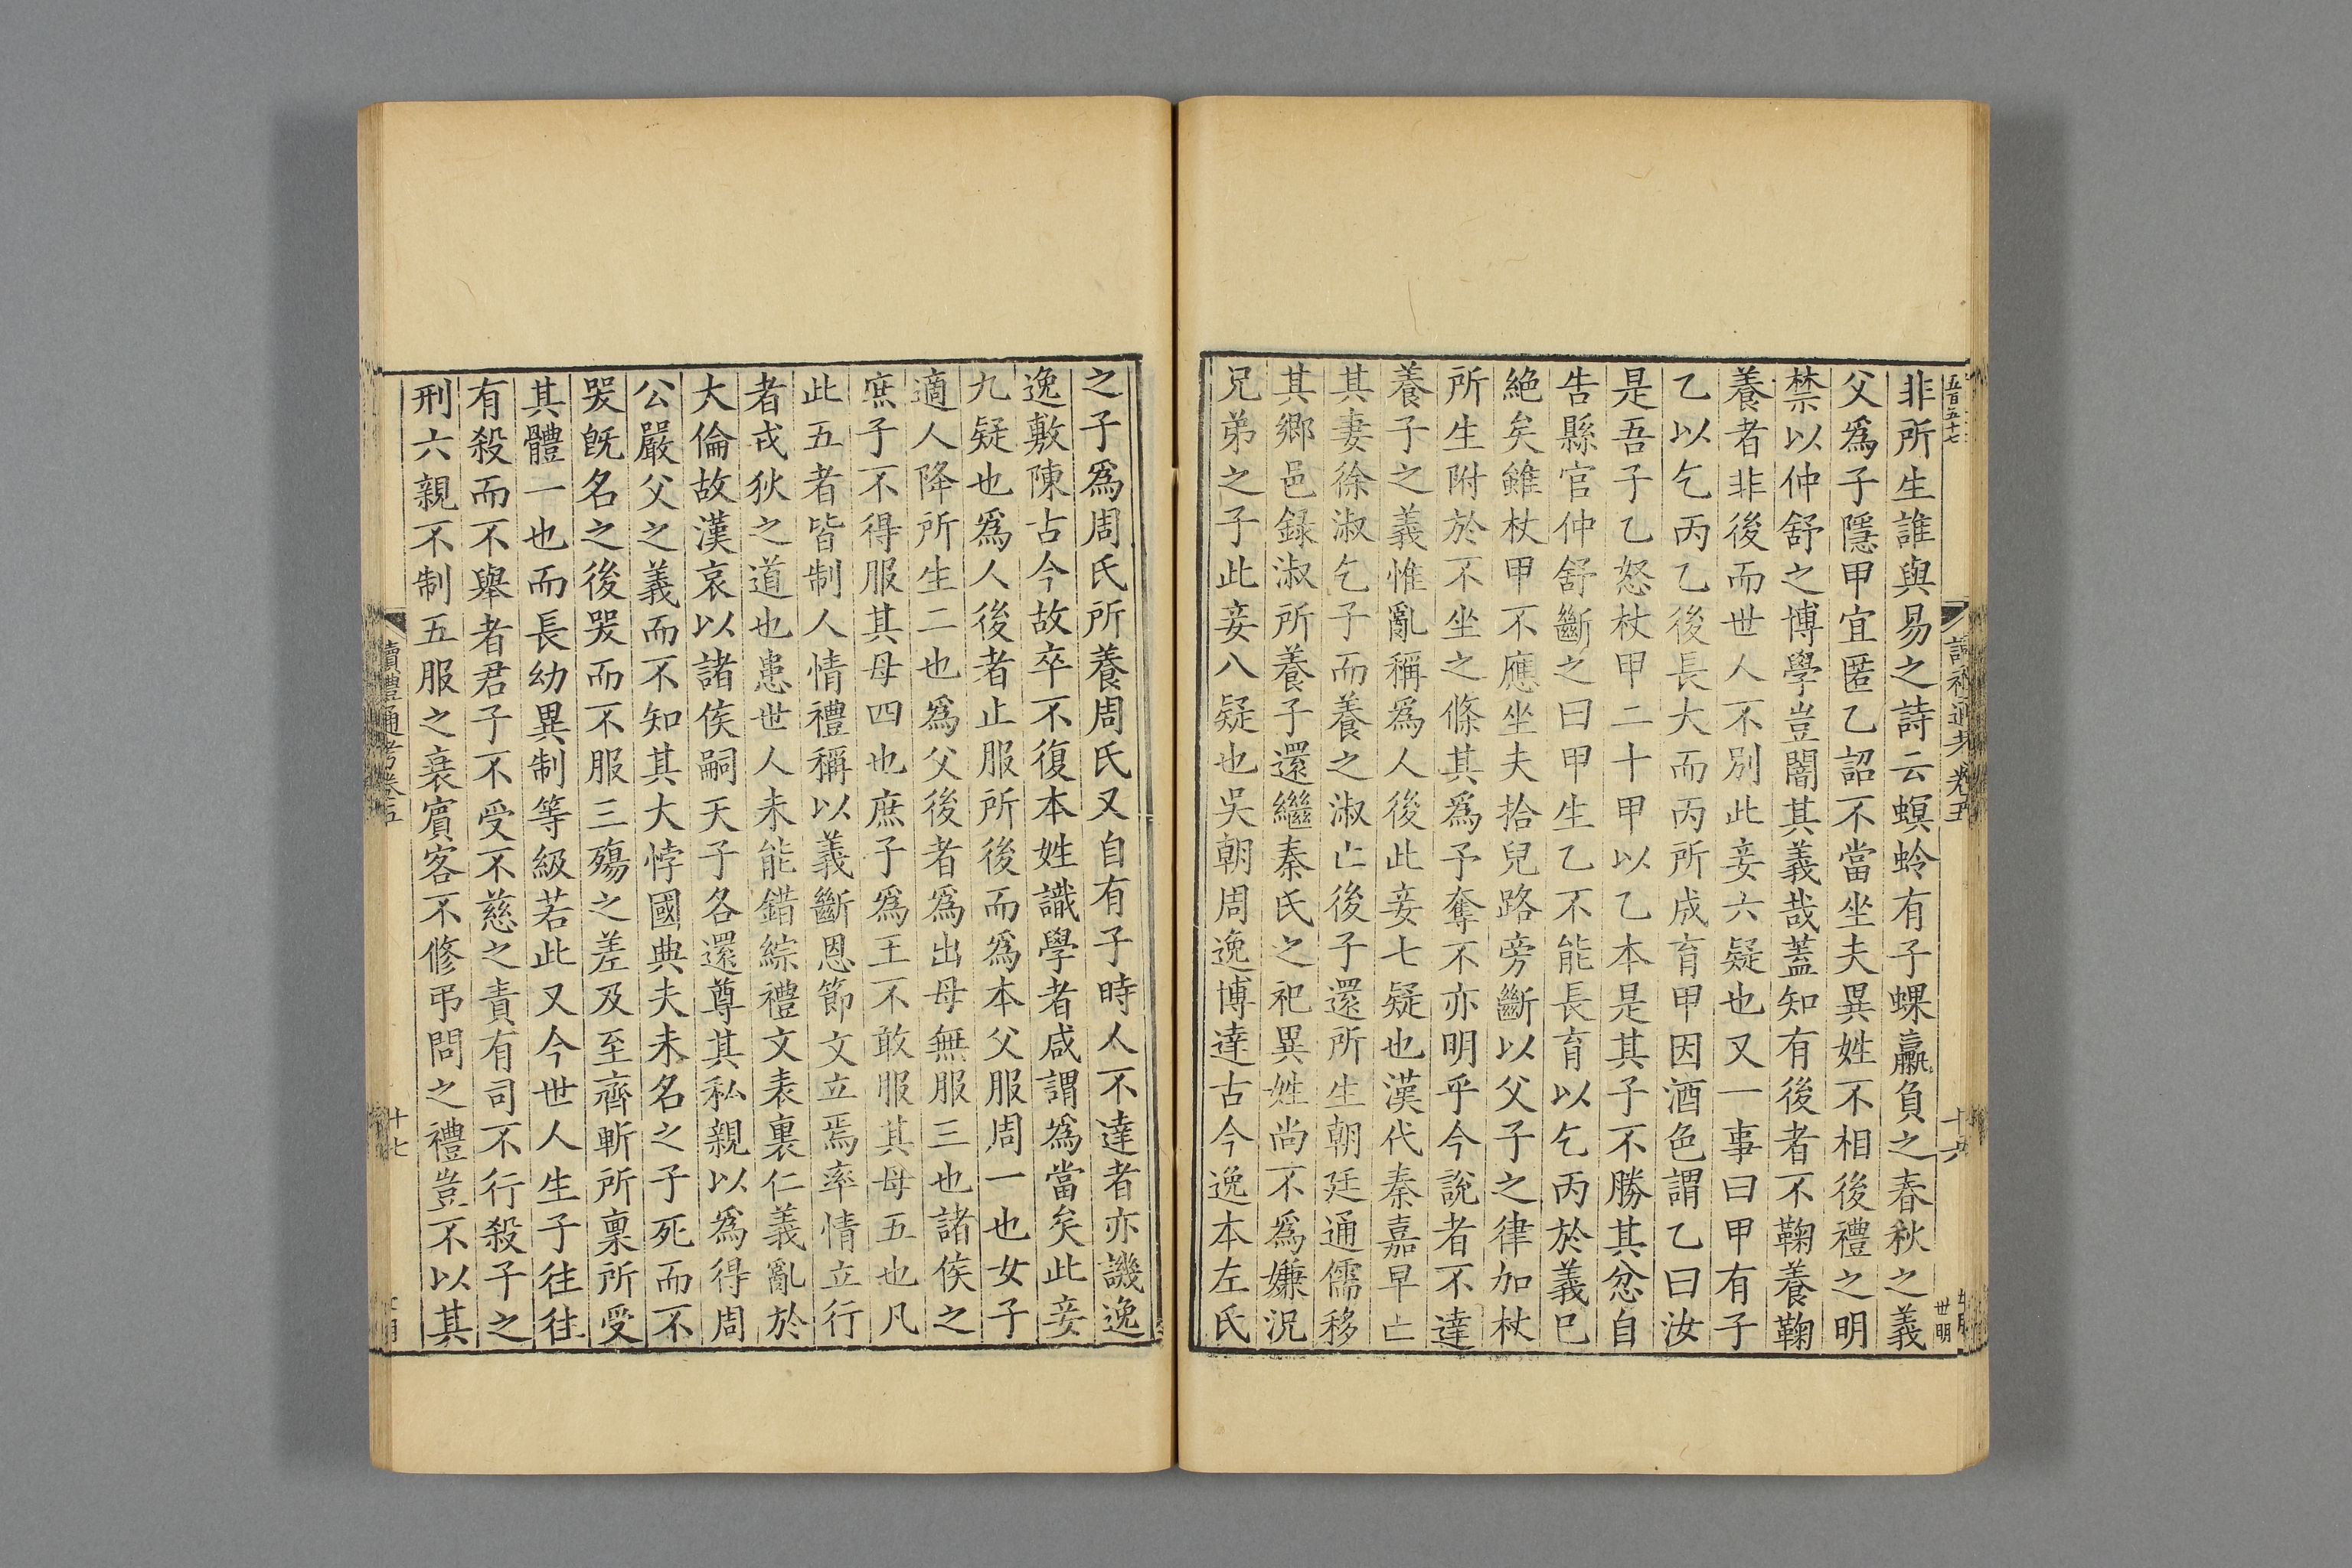 五百五十七
讀禮通考卷五
十六
世明
非所生誰與易之詩云螟蛉有子蜾蠃負之春秋之義
父爲子隱甲宜匿乙詔不當坐夫異姓不相後禮之明
禁以仲舒之博學豈闇其義哉蓋知有後者不鞠養鞠
養者非後而世人不別此妾六疑也又一事曰甲有子
乙以乞丙乙後長大而丙所成育甲因酒色謂乙曰汝
是吾子乙怒杖甲二十甲以乙本是其子不勝其忿自
告縣官仲舒斷之曰甲生乙不能長育以乞丙於義已
絶矣雖杖甲不應坐夫拾兒路旁斷以父子之律加杖
所生附於不坐之條其爲予奪不亦明乎今說者不達
養子之義惟亂稱爲人後此妾七疑也漢代秦嘉早亡
其妻徐淑乞子而養之淑亡後子還所生朝廷通儒移
其鄉邑録淑所養子還繼秦氏之祀異姓尚不爲嫌況
兄弟之子此妾八疑也吳朝周逸博達古今逸本左氏
之子爲周氏所養周氏又自有子時人不達者亦譏逸
逸敷陳古今故卒不復本姓識學者咸謂爲當矣此妾
九疑也爲人後者止服所後而爲本父服周一也女子
適人降所生二也爲父後者爲出母無服三也諸侯之
庶子不得服其母四也庶子爲王不敢服其母五也凡
此五者皆制人情禮稱以義斷恩節文立焉率情立行
者戎狄之道也患世人未能錯綜禮文表裏仁義亂於
大倫故漢哀以諸侯嗣天子各還尊其私親以爲得周
公嚴父之義而不知其大悖國典夫未名之子死而不
哭旣名之後哭而不服三殤之差及至齊斬所稟所受
其體一也而長幼異制等級若此又今世人生子往往
有殺而不舉者君子不受不慈之責有司不行殺子之
刑六親不制五服之衰賓客不修弔問之禮豈不以其
讀禮通考卷五
十七